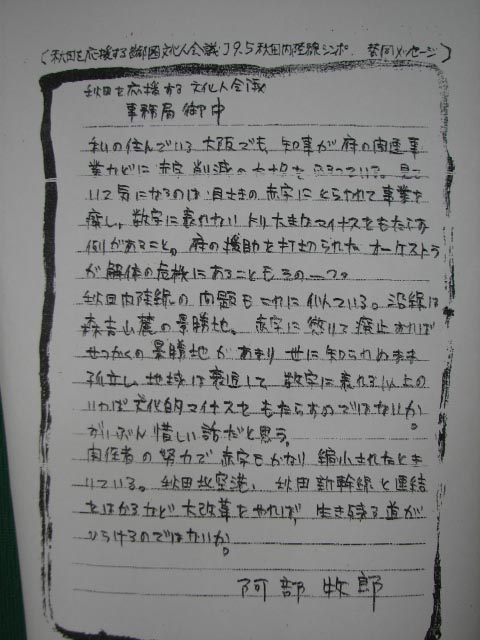 (秋田を応援する 文化人会議 9.5秋田内陸線シンポ 賛同メッセージ)
秋田を応援する 文化人会議
事務局御中
私の住んでいる大阪でも、知事が府の関連事
業などに赤字削減の
いて気になるのは目さきの赤字にとらわれて事業を
廃し、数字に表れないより大きなマイナスをもたらす
例があること。府の援助を打切られた オーケストラ
が解体の危機にあることもその一つ。
秋田内陸線の問題もこれに似ている。沿線は
森吉山麓の景勝地。赤字に懲りて廃止すれば
せっかくの景勝地があまり世に知られぬまま
孤立し、地域は衰退して、数字に表れる以上の
いわば文化的マイナスをもたらすのではないか。
ずいぶん惜しい話だと思う。
関係者の努力で赤字もかなり縮小されたとき
いている。秋田北空港、秋田新幹線と連結
をはかるなど大改革をやれば、生き残る道が
ひらけるのではないか。
阿部牧郎